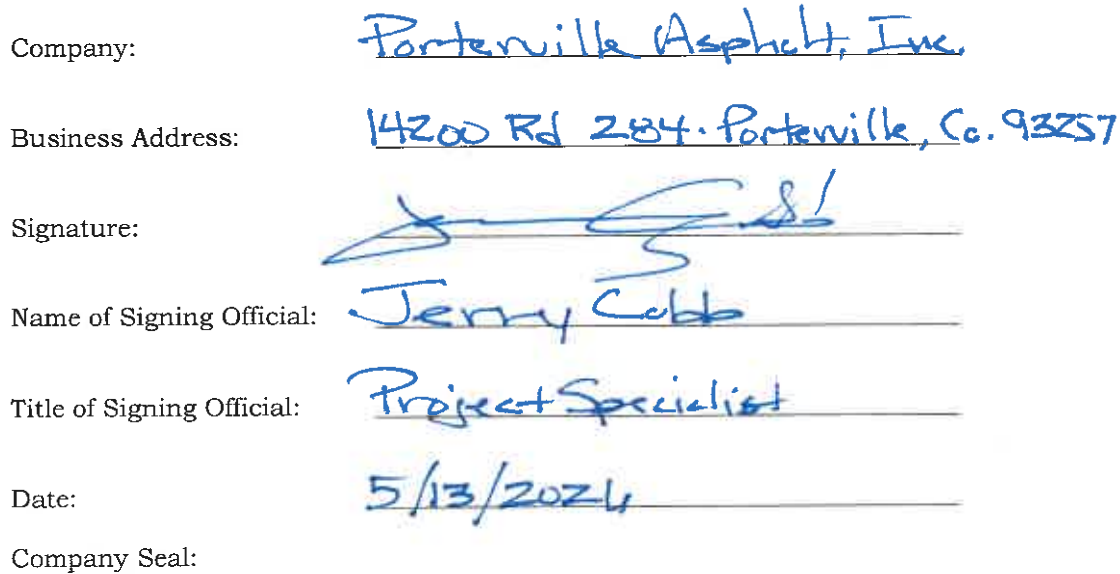 Company: Porterville Asphalt, Inc.
Business Address: 14200 Rd 284. Porterville, Ca. 93257
Signature:
Name of Signing Official: Jerry Cobb
Title of Signing Official: Project Specialist
Date: 5/13/2024
Company Seal: